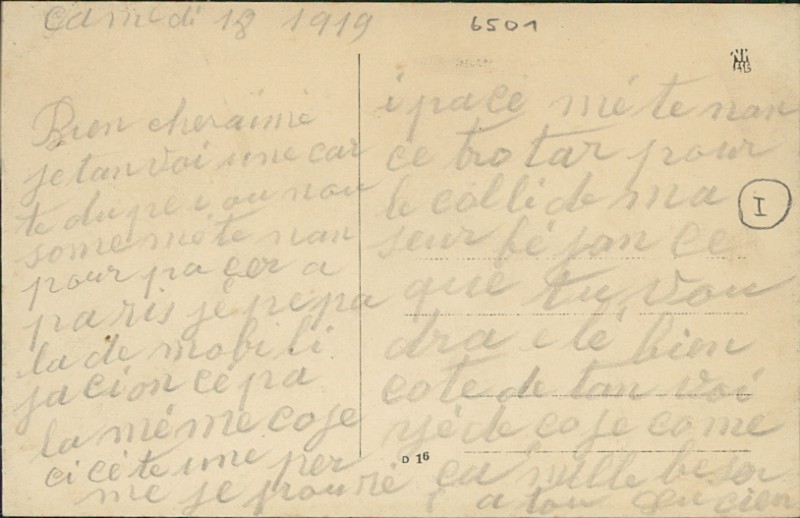 camedi 18 1919
6501
Bien cheraimé
je tan voi une car
te du peiou nou
some méte nan
pour pacer a
paris jé pepa
la de mobili
jacion cépa
la méme cose
ci cète une per
me je pouré
i pace méte nan
ce tro tar pour
le colli de ma
seur fé son ce
que tu vou
dra e lé bien
cote de tan voi
yé de cose come
ca mille beser
a ton
I
D 16